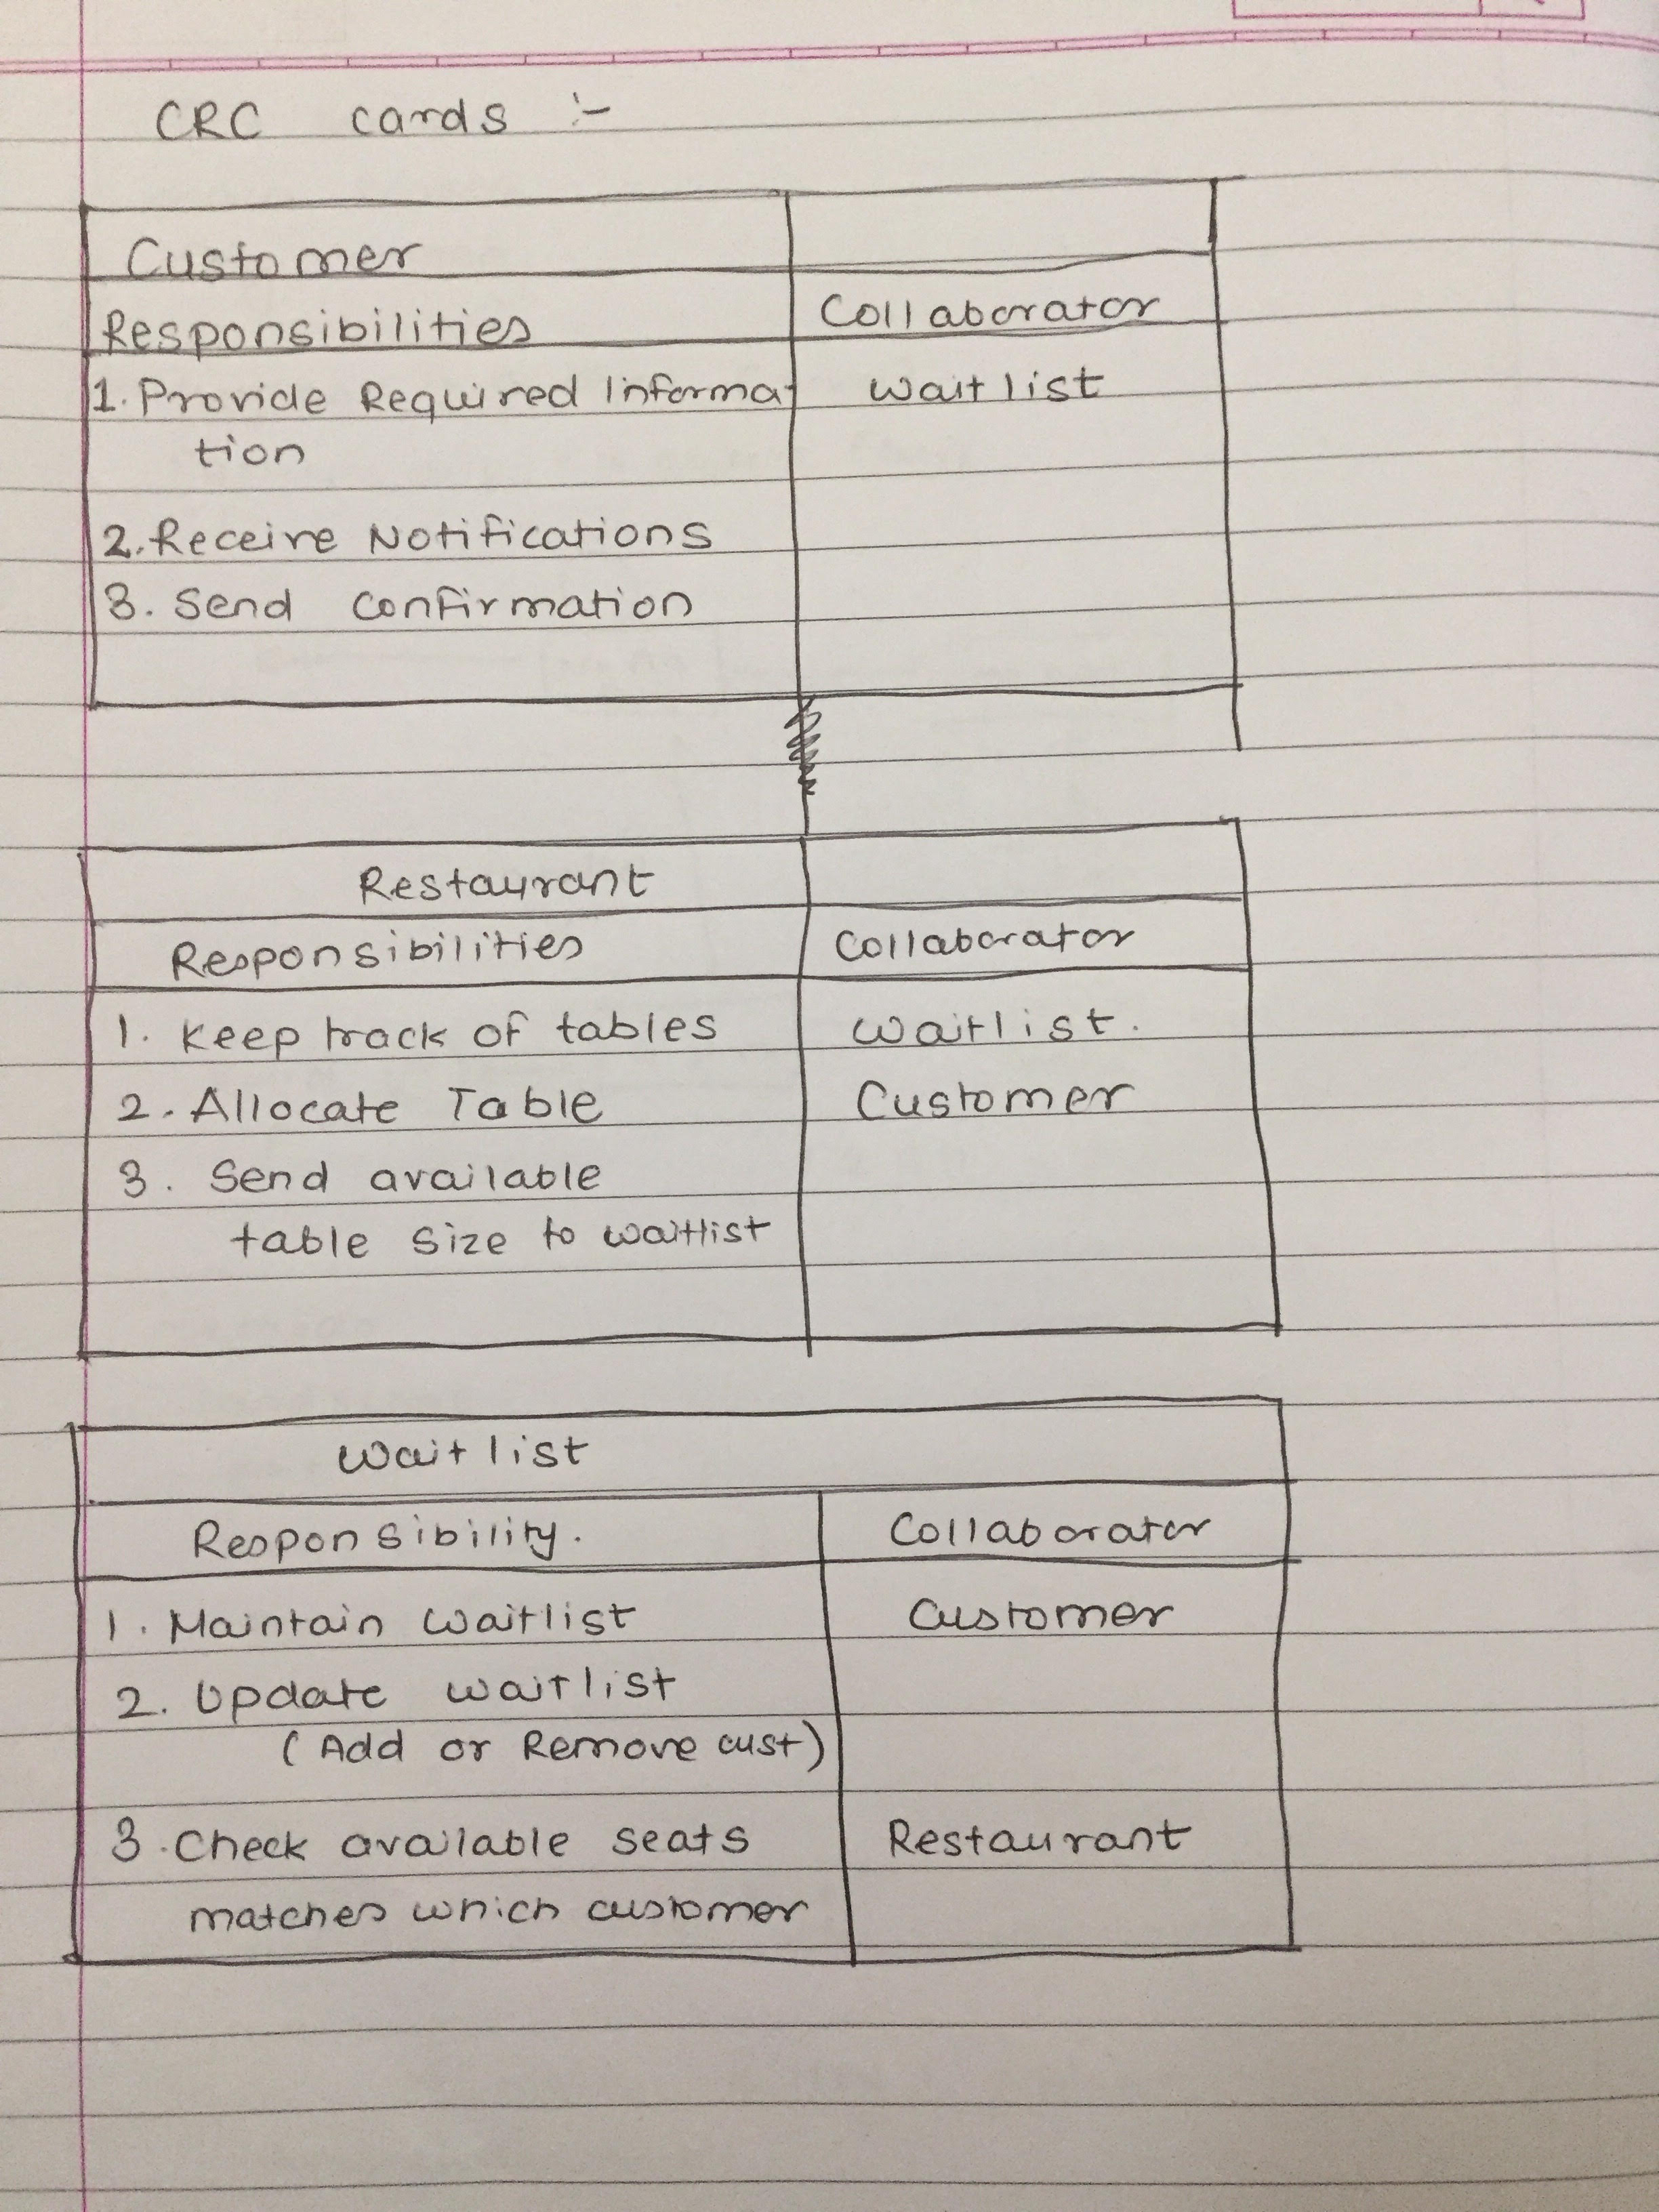 CRC cards :-
Customer
Responsibilities Collaborator
1. Provide Required Informa Waitlist
tion
2. Receive Notifications
3. Send confirmation
Restaurant
Responsibilities Collaborator
1. Keep track of tables Waitlist.
2. Allocate Table Customer
3. Send available
table size to waitlist
Waitlist
Responsibility. Collaborator
1. Maintain Waitlist Customer
2. Update waitlist
(Add or Remove cust)
3. Check available seats Restaurant
matches which customer